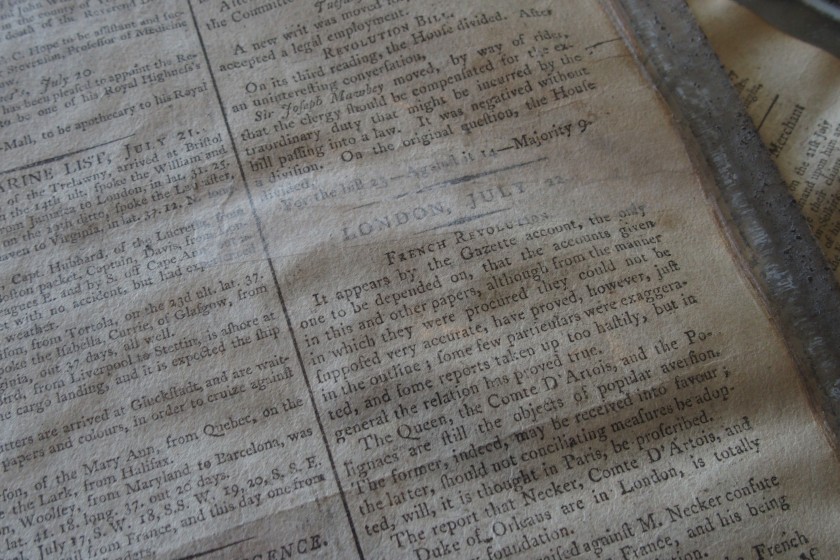 death of the Reverend
C. Hope to be assistant and suc-
Stevenson, Professor of Medicine
July 20.
has been pleased to appoint the Re-
to be one of his Royal Highness's
Mall, to be apothecary to his Royal
ARINE LIST, JULY 21.
of the Trelawny, arrived at Bristol
the 14th ult. spoke the William and
from Jamaica to London, in lat. 31. 25.
on the 19th ditto, spoke the Lady
haven to Virginia, in lat. 37. 12. N.
Capt. Hubbard, of the Lucretia, from
Boston packet, Captain Davis, from
leagues E. and by S. off Cape
met with no accident, but had
weather.
from Tortola, on the 23d ult. lat. 37.
spoke the Isabella, Currie, of Glasgow, from
ginia, out 37 days, all well.
Bird, from Liverpool to Stettin, is ashore at
cargo landing, and it is expected the ship
tters are arrived at Gluckstadt, and are wait-
papers and colours, in order to cruize against
son, of the Mary Ann, from Quebec, on the
the Lark, from Halifax.
n, Woolley, from Maryland to Barcelona, was
lat. 41. 18. long. 37. out 26 days.
July 17, S. W. 18, S.S. W. 19, 20, S. S. E.
sail from France, and this day one from
GENCE.
the Committee
A new writ was moved
accepted a legal employment.
REVOLUTION BILL.
On its third reading, the House divided. After
an uninteresting conversation,
Sir Joseph Mawbey moved, by way of rider,
that the clergy should be compensated for the ex-
traordinary duty that might be incurred by the
bill passing into a law. It was negatived without
a division. On the original question, the House
divided,
For the bill 23—Against it 14—Majority 9.
LONDON, JULY 22.
FRENCH REVOLUTION.
It appears by the Gazette account, the only
one to be depended on, that the accounts given
in this and other papers, although from the manner
in which they were procured they could not be
supposed very accurate, have proved, however, just
in the outline; some few particulars were exaggera-
ted, and some reports taken up too hastily, but in
general the relation has proved true.
The Queen, the Comte D'Artois, and the Po-
lignacs are still the objects of popular aversion.
The former, indeed, may be received into favour;
the latter, should not conciliating measures be adop-
ted, will, it is thought in Paris, be proscribed.
The report that Necker, Comte D'Artois, and
Duke of Orleans are in London, is totally
foundation.
against M. Necker confute
France, and his being
French
Merchant